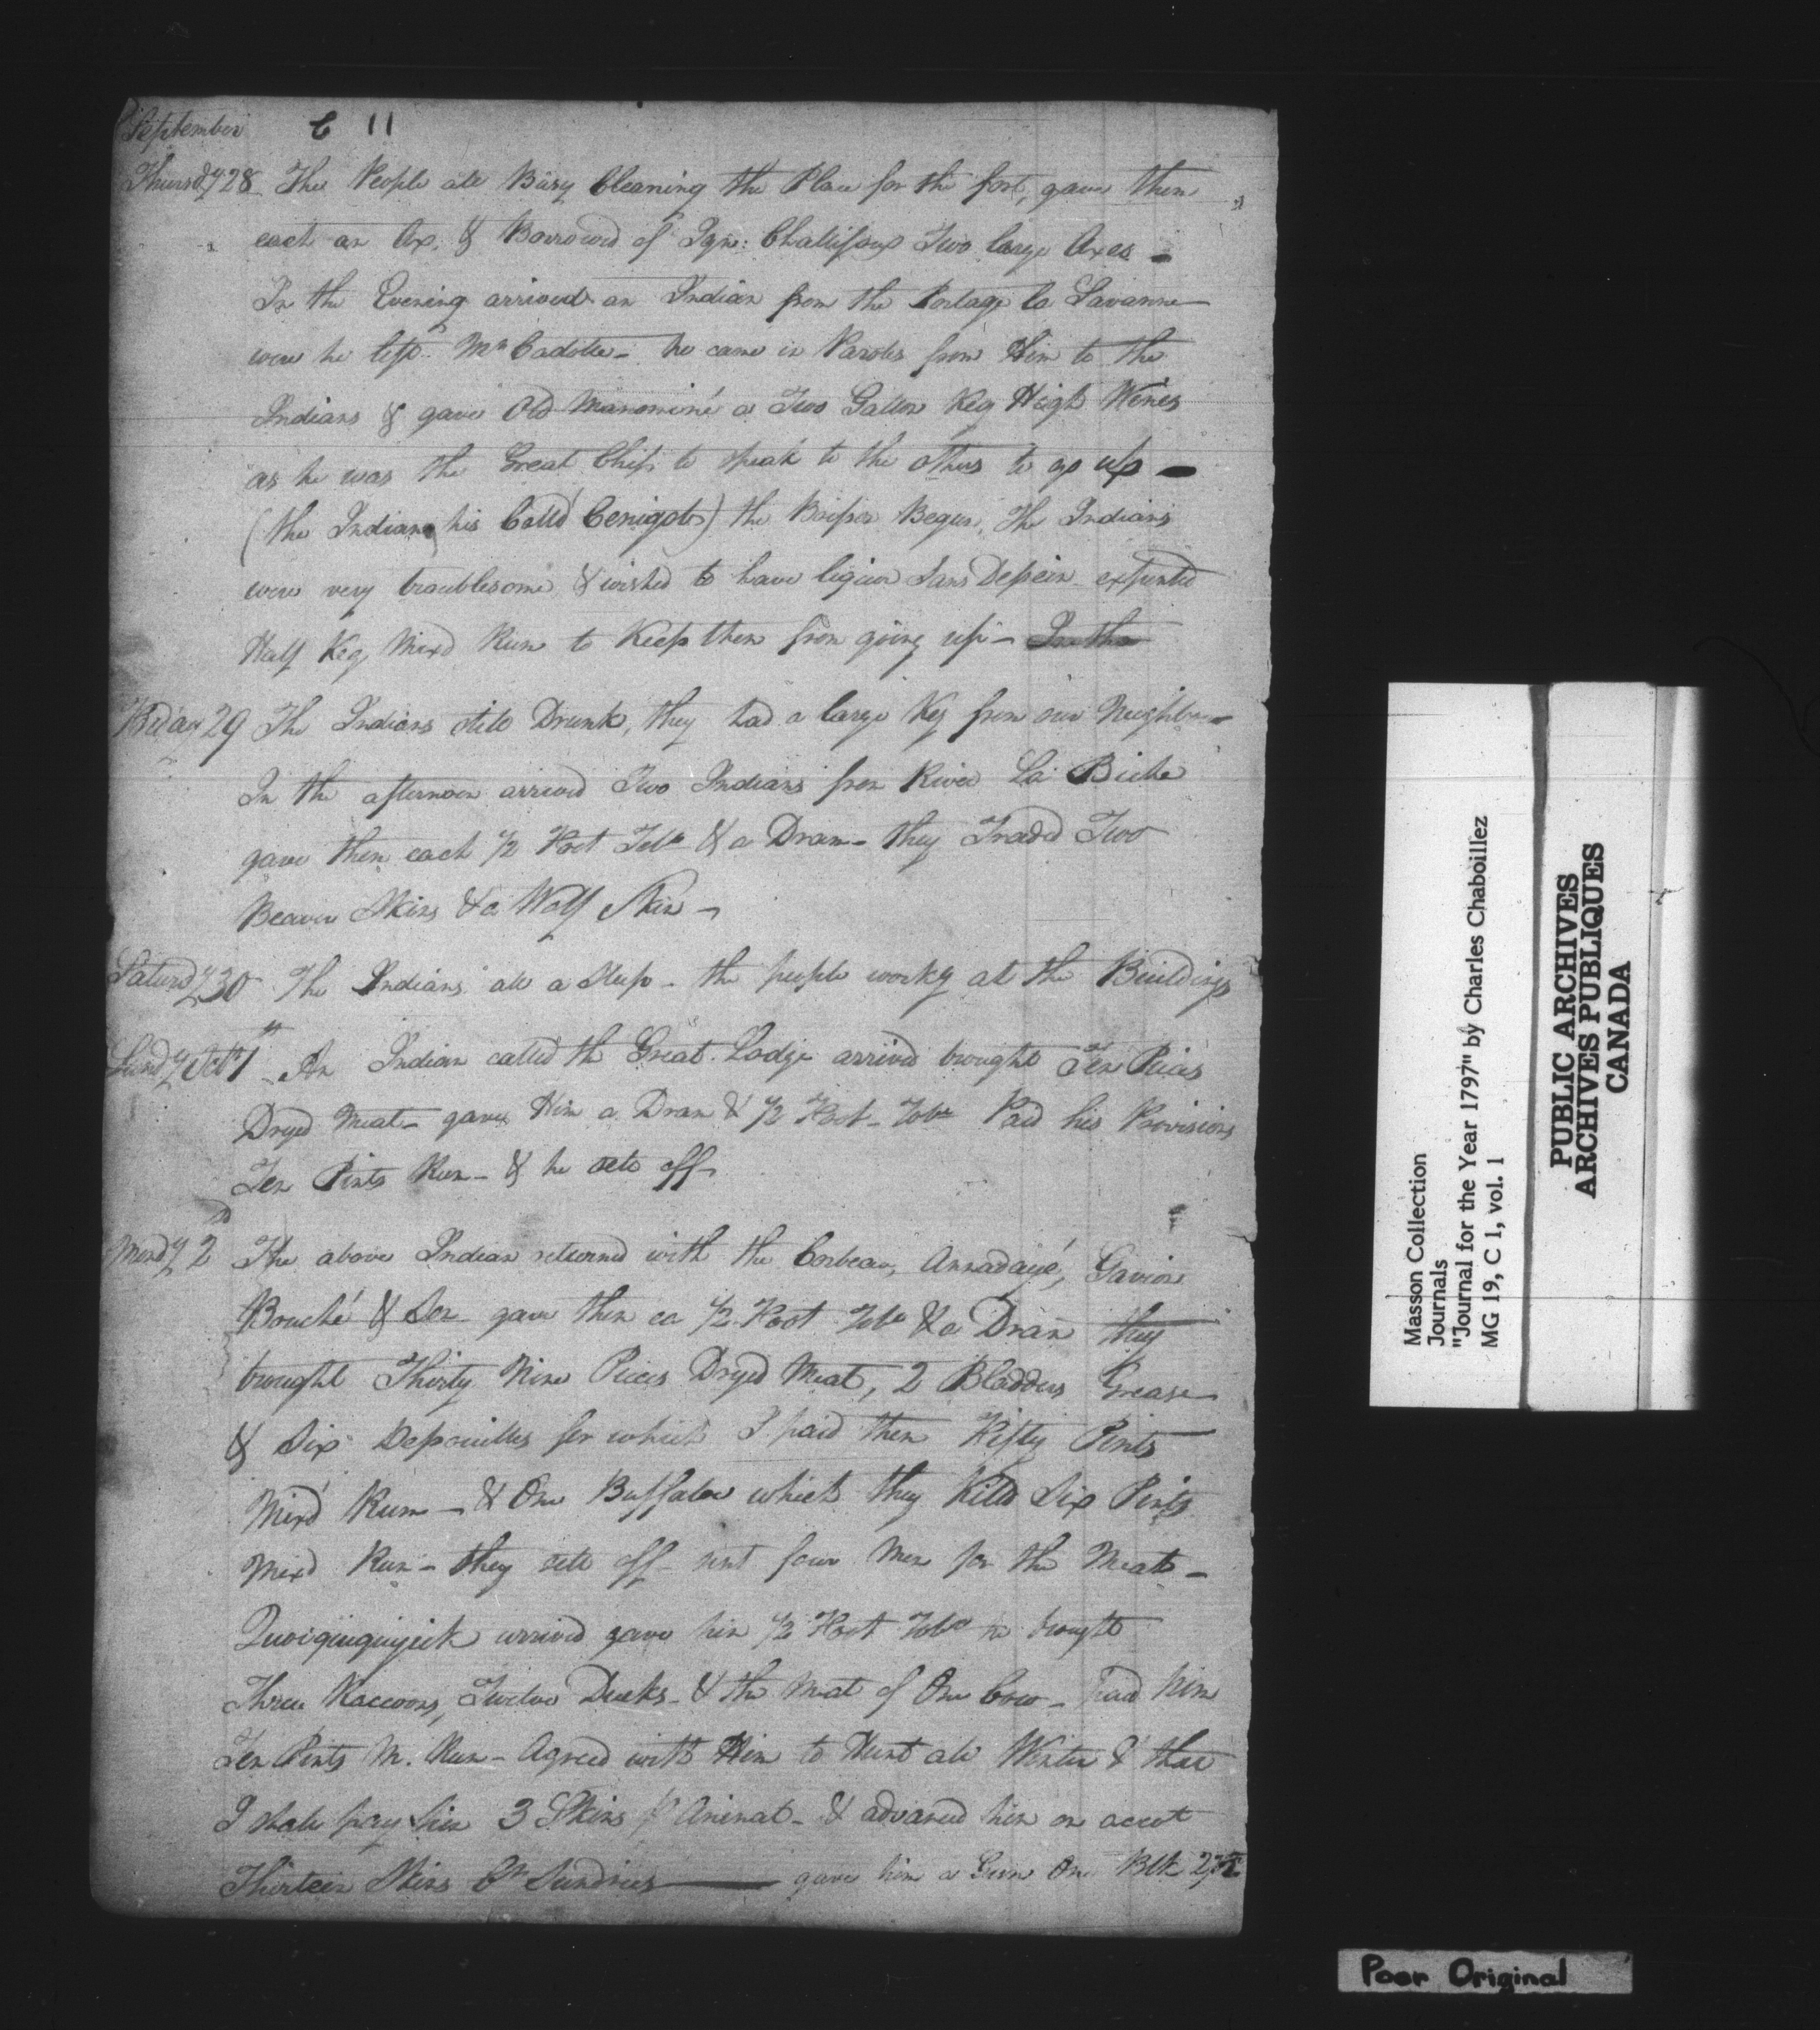 September 6 11
Thursdy 28 The People all Busy Cleaning the Place for the fort, gave them
each an Ax, & Borrowed of Ign: Challifoux Two large Axes -
In the Evening arrived an Indian from the Portage la Savanne
were he left Mr Cadotte - he came in Paroles from Him to the
Indians & gave Old Manominé a Two Gallon Keg High Wines
as he was the Great Chif to speak to the others to go up -
(the Indian his Calld Cenigots) the Boisson Began, The Indians
were very troublesome & wished to have liqiuer Sans Dessein expended
Half Keg Mixd Rum to Keep them from going up - In the
Friday 29 The Indians still Drunk, they had a large Keg from our Neighbour
In the afternoon arrived Two Indians from River La Biche
gave them each 1/2 Foot Toba & a Dram - they Traded Two
Beaver Skins & a Wolf Skin -
Saturdy 30 The Indians all a Sleep - the people workg at the Buildings
Sundy Octr 1st An Indian called the Great Lodge arrived brought Ten Peices
Dryed Meat - gave Him a Dram & 1/2 Foot Toba Paid his Provisions
Ten Pints Rum - & he sett off -
Mondy 2d The above Indian returned with the Corbeau, Annadayé, Gavion
Bouché & Son gave them ea 1/2 Foot Toba & a Dram they
brought Thirty Nine Peices Dryed Meat, 2 Bladders Grease
& Six Depouilles for which I paid them Fifty Pints
Mixd Rum - & One Buffaloe which they Killd Six Pints
Mixd Rum - they sett off sent four Men for the Meat -
arrived gave him 1/2 Foot Toba he brought
Three Raccoons, Twelve Ducks - & the Meat of One Cow - Paid him
Ten Pints M. Rum - Agreed with Him to Hunt all Winter & that
I shall pay him 3 Skins pr Animal - & advanced him on accot
Thirteen Skins Sundries - gave him a Gun One Blk
Masson Collection
Journals
"Journal for the Year 1797" by Charles Chaboillez
MG 19, C 1, vol. 1
PUBLIC ARCHIVES
ARCHIVES PUBLIQUES
CANADA
Poor Original